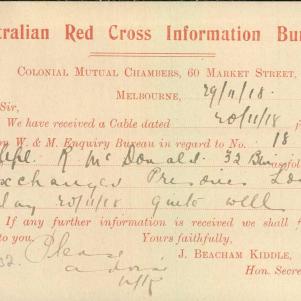 tralian Red Cross Information Bu
Colonial Mutual Chambers, 60 Market Street,
Melbourne, 29/11/18.
Sir,
We have received a Cable dated 20/11/18
W. & M. Enquiry Bureau in regard to No. 18
Cpl. K. McDonald. 32 Bn as fol
xchanged Prisoner Lon
20/11/18 quite well
If any further information is received we shall
to you. Yours faithfully,
Please J. Beacham Kiddle,
32. Hon. Secre